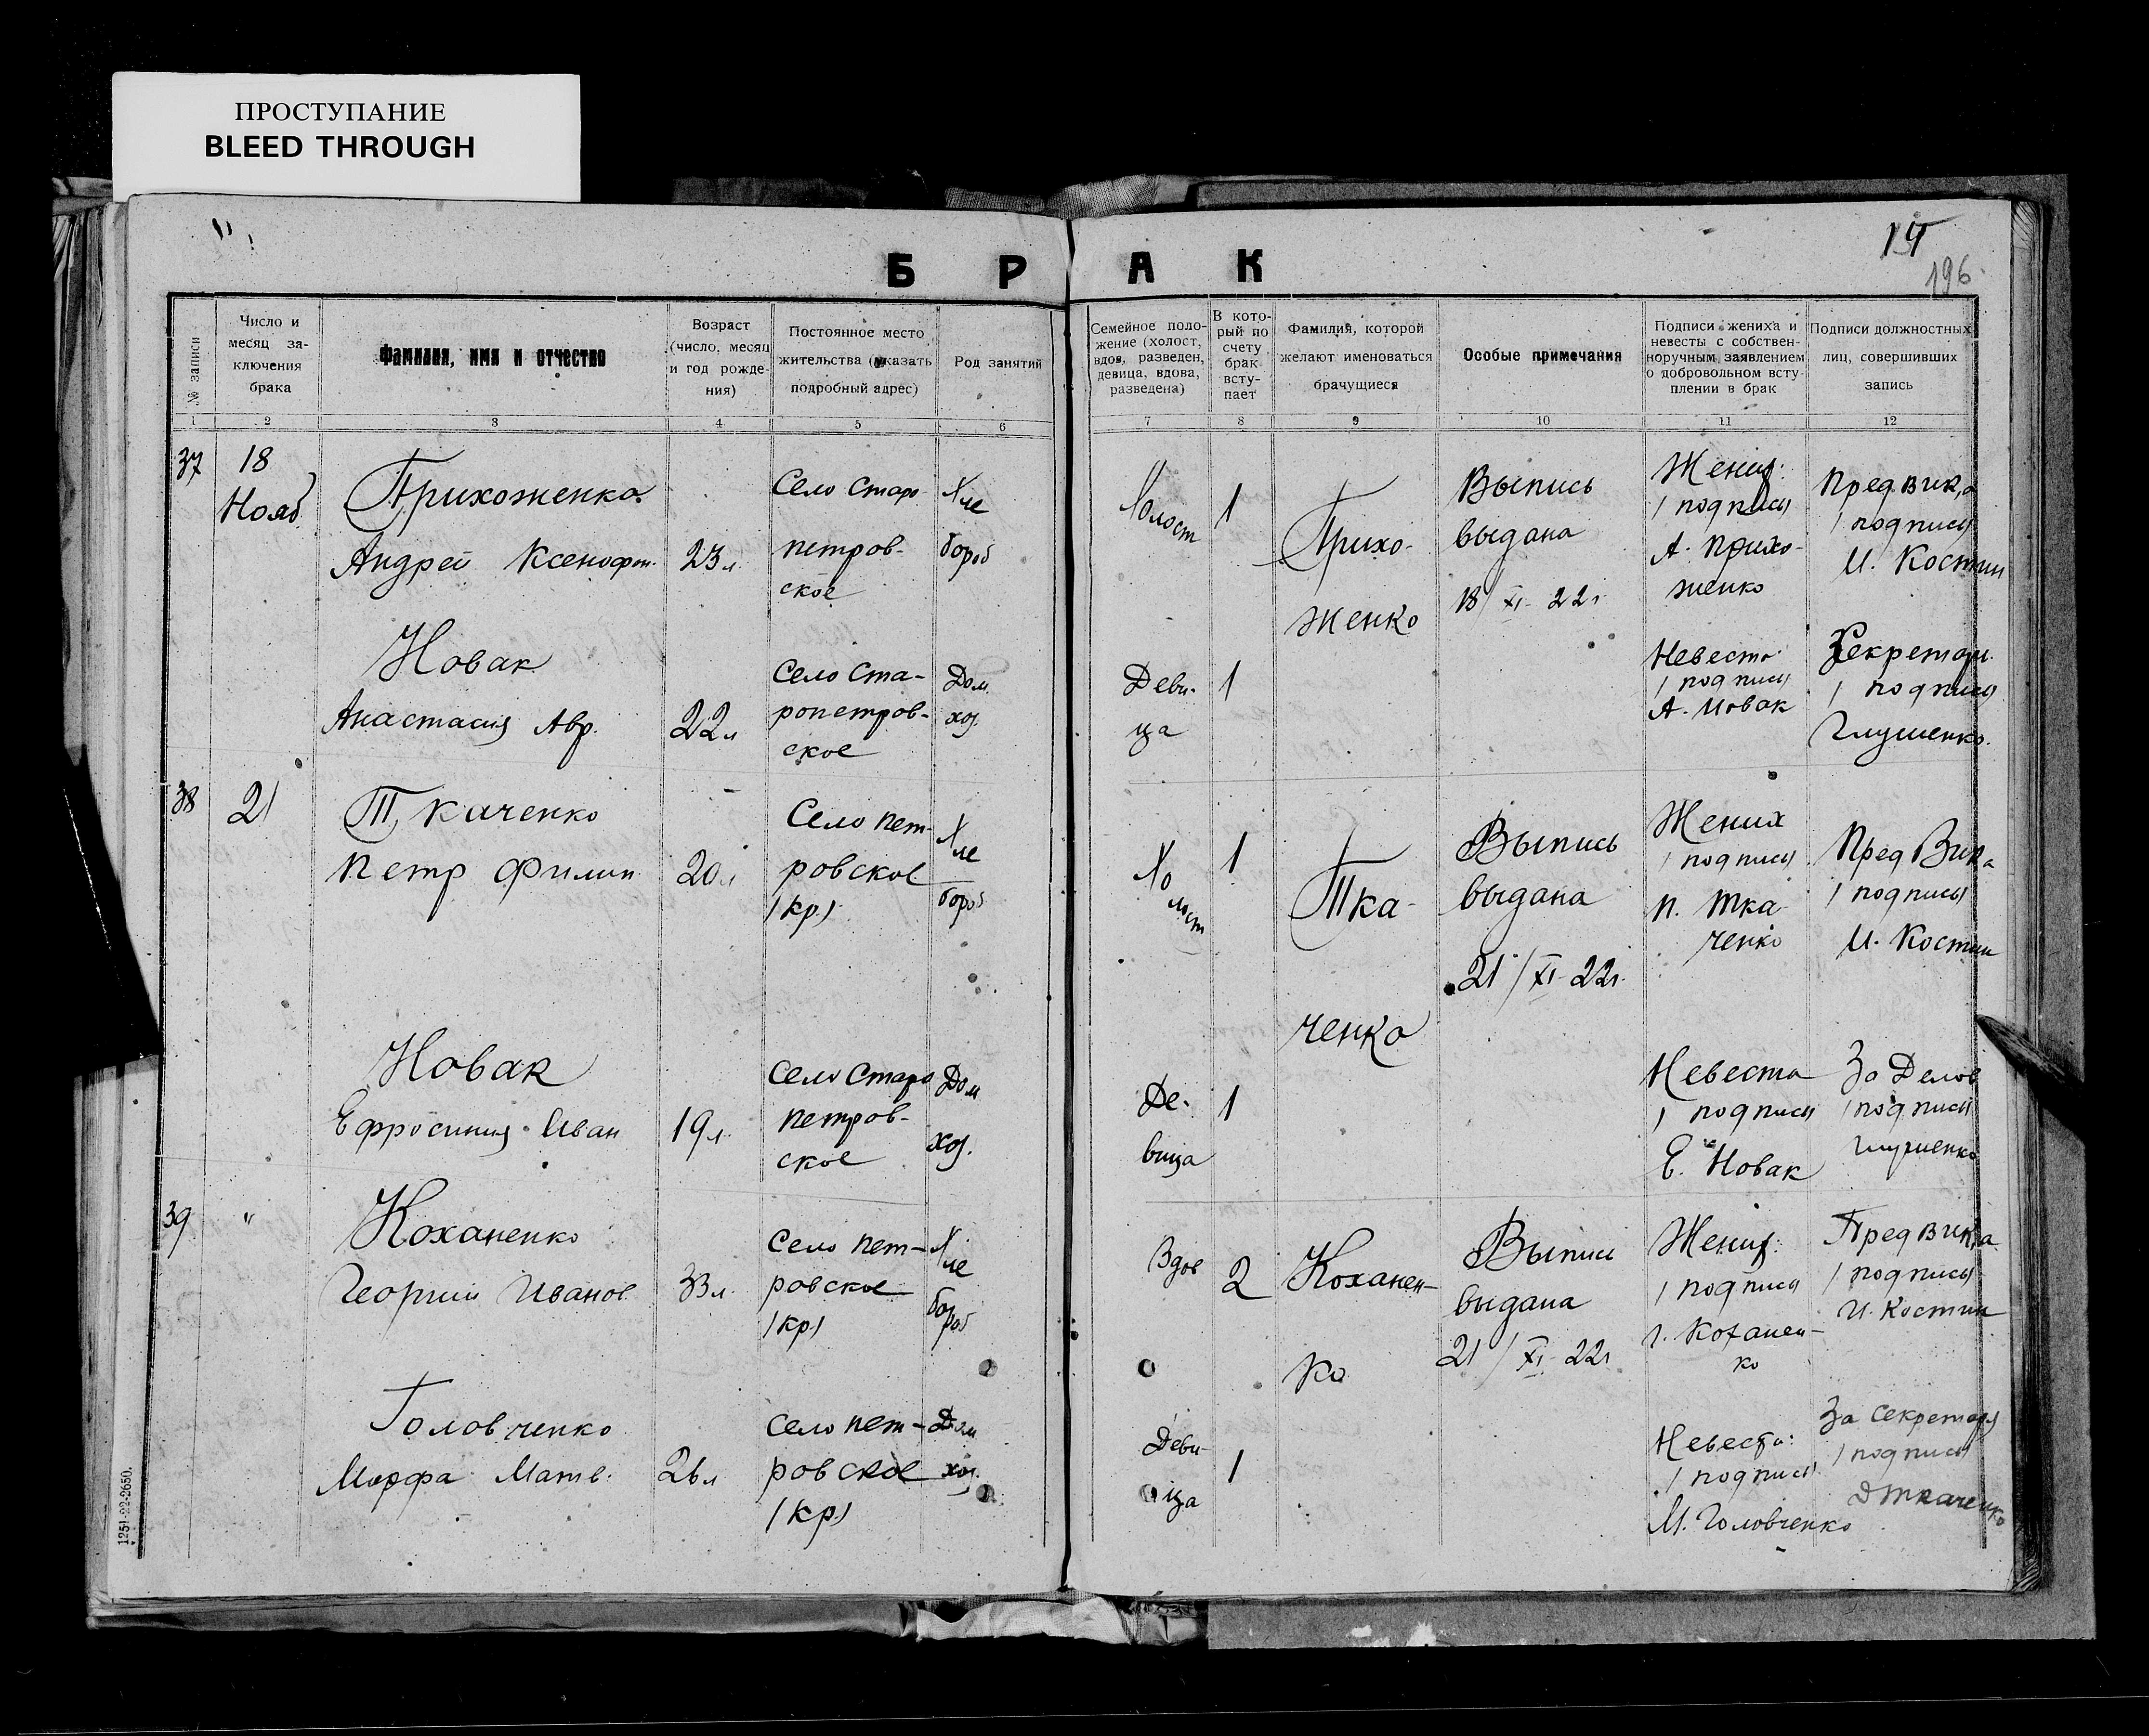 ПРОСТУПАНИЕ
BLEED THROUGH
Б Р А К
196
№ записи
Число и месяц за-ключения брака
Фамилия, имя и отчество
Возраст (число, месяц и год рожде-ния)
Постоянное место жительства (указать подробный адрес)
Род занятий
Семейное поло-жение (холост, вдов, разведен, девица, вдова, разведена)
В кото-рый по счету брак всту-пает
Фамилия, которой желают именоваться брачущиеся
Особые примечания
Подписи жениха и невесты с собствен-норучным заявлением о добровольном всту-плении в брак
Подписи должностных лиц, совершивших запись
1 2 3 4 5 6 7 8 9 10 11 12
37
18
Нояб.
Прихоженко
Андрей Ксенофон.
23 л.
Село Старо
петров-
ское
Хле
бороб
Холост
1
Прихо-
женко
Выпись
выдана
18/XI-22 г.
Жених:
/подпись/
А. Прихо-
женко
Пред вик,а
/подпись/
И. Костин
Новак
Анастасия Авр.
22 л
Село Ста-
ропетров-
ское
Дом.
хоз.
Деви-
ца
1
Невеста
/подпись/
А. Новак
Секретарь
/подпись/
Глущенко.
38
21
Ткаченко
Петр Филип
20 л
Село Пет-
ровское
/кр./
Хле
бороб
Хо
лост
1
Тка-
ченко
Выпись
выдана
21/XI-22 г.
Жених
/подпись/
П. Тка
ченко
Пред Вик,а
/подпись/
И. Костин
Новак
Ефросиния Иван
19 л.
Село Старо
петров-
ское
Дом
хоз.
Де-
вица
1
Невеста
/подпись/
Е. Новак
За Делов
/подпись/
Глущенко
39
"
Коханенко
Георгий Иванов
33 л.
Село Пет-
ровское
/кр/
Хле
бороб
Вдов
2
Коханен-
ко
Выпись
выдана
21/XI-22 г
Жених:
/подпись/
Г. Коханен-
ко
Пред вик,а
/подпись/
И. Костин
Головченко
Марфа Матв.
26 л
Село Пет-
ровское
/кр./
Дом
хоз.
Деви-
ца
1
Невеста:
/подпись/
М. Головченко
За Секретаря
/подпись/
Д Ткаченко
1251-22-2650.